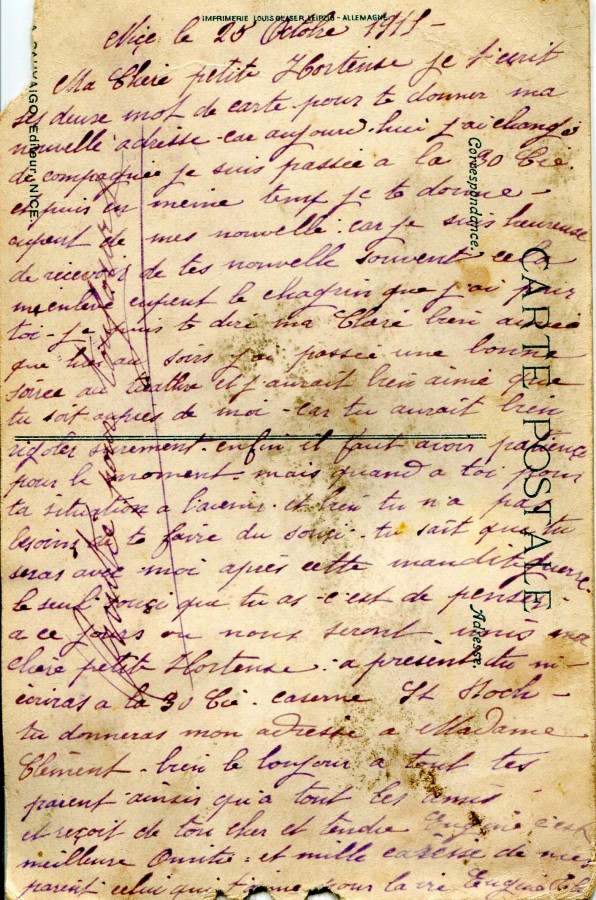 IMPRIMERIE LOUIS GLASER, LEIPZIG - ALLEMAGNE
Nice le 25 Octobre 1915 -
Ma Chere petite Hortense je t'ecrit
ses deux mot de carte pour te donner ma
nouvelle adresse - car aujourd'hui j'ai changé
de compagnie je suis passée a la 30 Cie.
et puis en meine temp je te donne -
aupent de mes nouvelle. car je suis heureuse
de recevoir de tes nouvelle souvent cela
m'enlève aupent le chagrin que j'ai pour
toi - je puis te dire ma Chère bien aimée
que au soirs j'ai passée une bonne
soirée au teathre et j'aurait bien aimé que
tu soit aupres de moi - car tu aurait bien
rigoler surement - enfin il faut avoir patience
pour le moment - mais quand a toi pour
ta situation a l'avenir et bien tu n'a pas
besoins de te faire du souçi - tu sait que tu
seras avec moi après cette maudite guerre.
le seul souçi que tu as - c'est de penser -
a ce jours ou nous seront unis ma
chere petite Hortense. a present tu m'
écriras a la 30 Cie. caserne St Roch -
tu donneras mon adresse a Madame
Clément - bien le bonjour a tout tes
parent ainsis qu'a tout les amis
et reçoit de ton cher et tendre Eugène c'est
meilleure Amitié - et mille caresse de mes
parent celui qui t'aime pour la vie Eugène
Correspondance.
CARTE POSTALE
Adresse.
Editeur, NICE.
pour toujours